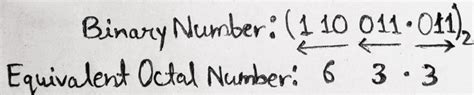 Binary Number: (1 10 011 · 011)₂
Equivalent Octal Number: 6 3 · 3